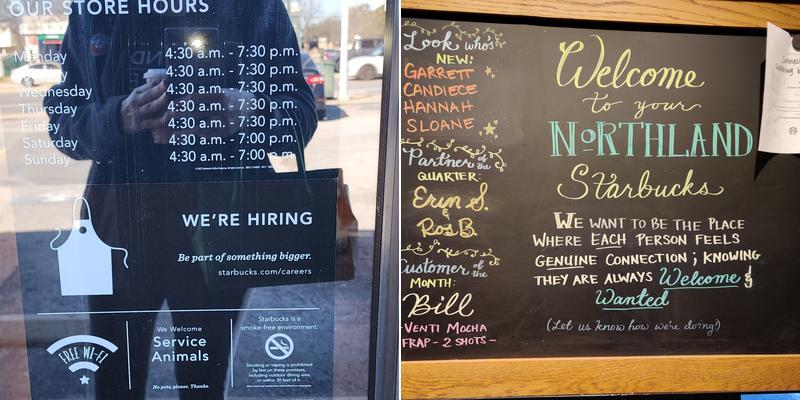 OUR STORE HOURS
Monday 4:30 a.m. - 7:30 p.m.
4:30 a.m. - 7:30 p.m.
Wednesday 4:30 a.m. - 7:30 p.m.
Thursday 4:30 a.m. - 7:30 p.m.
Friday 4:30 a.m. - 7:30 p.m.
Saturday 4:30 a.m. - 7:00 p.m.
Sunday 4:30 a.m. - 7:00 p.m.
WE'RE HIRING
Be part of something bigger.
starbucks.com/careers
FREE WI-FI
We Welcome
Service
Animals
No pets, please. Thanks.
Starbucks is a
smoke-free environment.
Smoking or vaping is prohibited
by law on these premises,
including outdoor dining area
or within 30 feet of it.
Look who's
NEW:
GARRETT
CANDIECE
HANNAH
SLOANE
Partner of the
QUARTER:
Erin S.
&
Ros B.
Customer of the
MONTH:
Bill
-VENTI MOCHA
FRAP - 2 SHOTS -
Welcome
to your
NORTHLAND
Starbucks
WE WANT TO BE THE PLACE
WHERE EACH PERSON FEELS
GENUINE CONNECTION; KNOWING
THEY ARE ALWAYS Welcome &
Wanted
(Let us know how we're doing!)